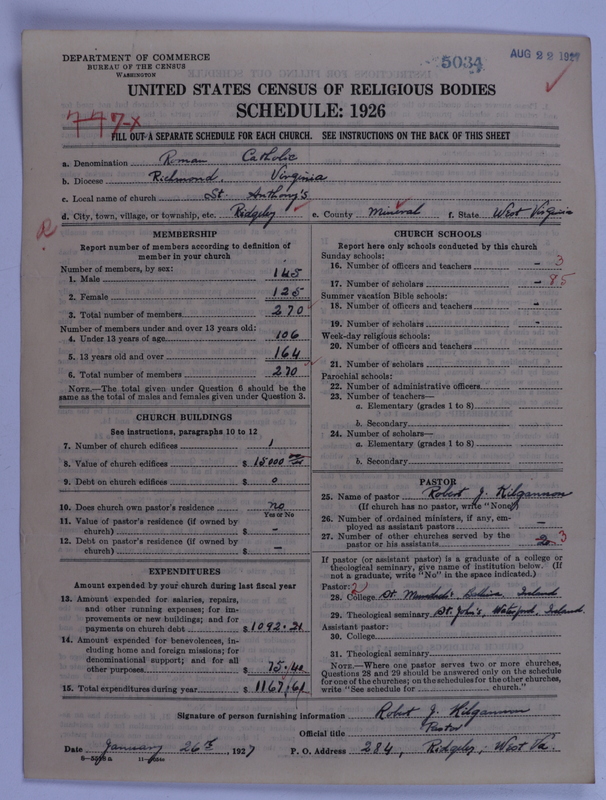 DEPARTMENT OF COMMERCE
BUREAU OF THE CENSUS
WASHINGTON
5034
AUG 22 1927
UNITED STATES CENSUS OF RELIGIOUS BODIES
SCHEDULE: 1926
777-x
FILL OUT A SEPARATE SCHEDULE FOR EACH CHURCH. SEE INSTRUCTIONS ON THE BACK OF THIS SHEET
a. Denomination Roman Catholic
b. Diocese Richmond, Virginia
c. Local name of church St. Anthony's
d. City, town, village, or township, etc. Ridgeley e. County Mineral f. State West Virginia
MEMBERSHIP
Report number of members according to definition of member in your church
Number of members, by sex:
1. Male 145
2. Female 125
3. Total number of members 270
Number of members under and over 13 years old:
4. Under 13 years of age 106
5. 13 years old and over 164
6. Total number of members 270
NOTE.—The total given under Question 6 should be the
same as the total of males and females given under Question 3.
CHURCH BUILDINGS
See instructions, paragraphs 10 to 12
7. Number of church edifices 1
8. Value of church edifices $15000
9. Debt on church edifices $ 0
10. Does church own pastor's residence no
Yes or No
11. Value of pastor's residence (if owned by
church) $ -
12. Debt on pastor's residence (if owned by
church) $ -
EXPENDITURES
Amount expended by your church during last fiscal year
13. Amount expended for salaries, repairs,
and other running expenses; for im-
provements or new buildings; and for
payments on church debt $1092.21
14. Amount expended for benevolences, in-
cluding home and foreign missions; for
denominational support; and for all
other purposes $ 75.40
15. Total expenditures during year $1167.61
CHURCH SCHOOLS
Report here only schools conducted by this church
Sunday schools:
16. Number of officers and teachers - 3
17. Number of scholars - 85
Summer vacation Bible schools:
18. Number of officers and teachers -
19. Number of scholars -
Week-day religious schools:
20. Number of officers and teachers
21. Number of scholars
Parochial schools:
22. Number of administrative officers
23. Number of teachers—
a. Elementary (grades 1 to 8)
b. Secondary
24. Number of scholars—
a. Elementary (grades 1 to 8)
b. Secondary
PASTOR
25. Name of pastor Robert J. Kilgannon
(If church has no pastor, write "None")
26. Number of ordained ministers, if any, em-
ployed as assistant pastors -
27. Number of other churches served by the
pastor or his assistants 3
If pastor (or assistant pastor) is a graduate of a college or
theological seminary, give name of institution below. (If
not a graduate, write "No" in the space indicated.)
Pastor: 2
28. College St. Ireland
29. Theological seminary St. John's, Waterford, Ireland.
Assistant pastor:
30. College
31. Theological seminary
NOTE.—Where one pastor serves two or more churches,
Questions 28 and 29 should be answered only on the schedule
for one of the churches; on the schedules for the other churches,
write "See schedule for church."
Signature of person furnishing information Robert J. Kilgannon
Official title Pastor
Date January 26th, 1927 P. O. Address 284, Ridgeley, West Va.